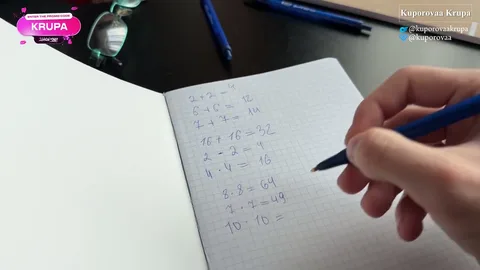 ENTER THE PROMOCODE
KRUPA
Kuporovaa Krupa
@kuporovaakrupa
@kuporovaa
2 + 2 = 4
6 + 6 = 12
7 + 7 = 14
16 + 16 = 32
2 · 2 = 4
4 · 4 = 16
8 · 8 = 64
7 · 7 = 49
10 · 10 =